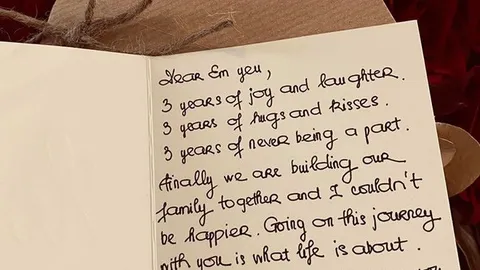 Dear Em yeu,
3 years of joy and laughter.
3 years of hugs and kisses.
3 years of never being a part.
Finally we are building our
family together and I couldn't
be happier. Going on this journey
with you is what life is about.